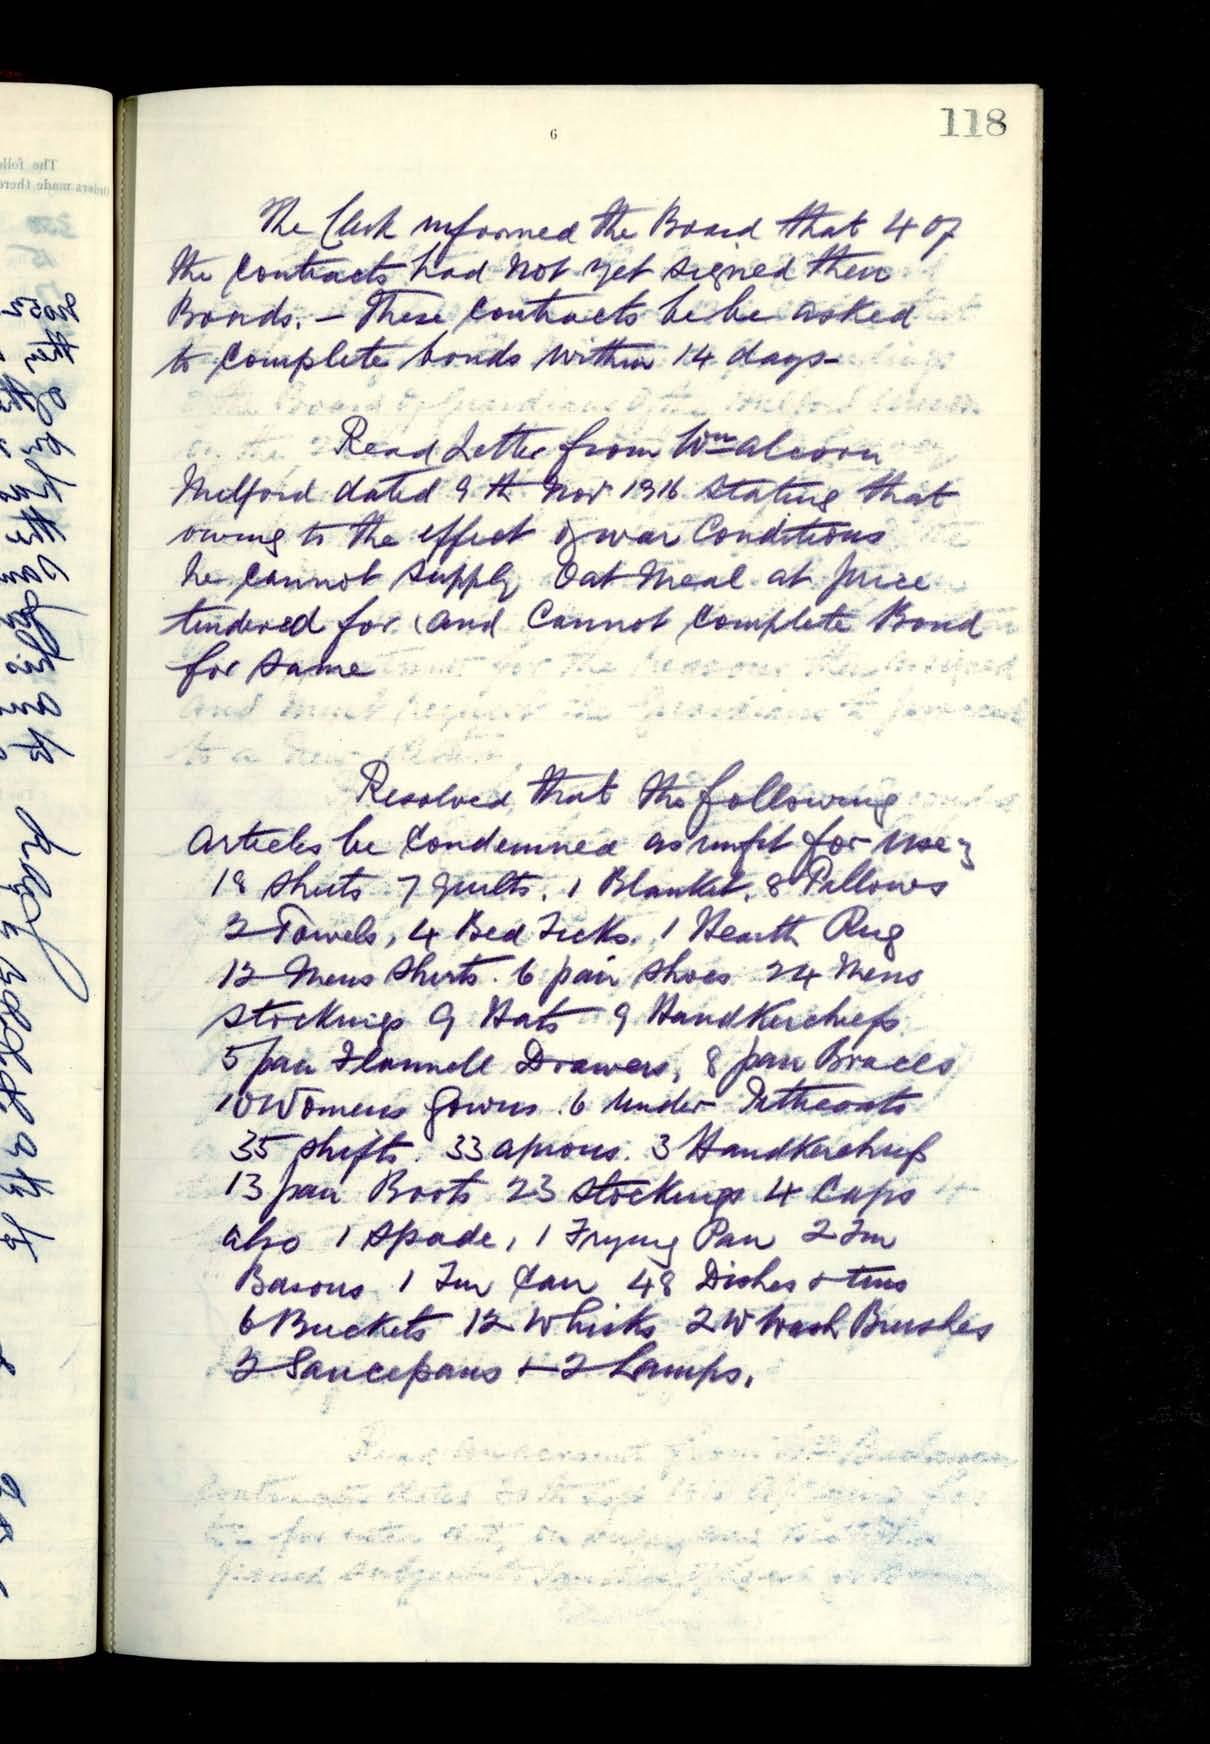 118
6
The Clerk informed the Board that 4 of
the Contracts had not yet signed their
Bonds. – These Contracts be be asked
to Complete bonds within 14 days–
Read Letter from Wm Alcorn
Milford dated 9th Nov 1916 stating that
owing to the effect of war Conditions
he cannot supply Oat Meal at price
tendered for, and Cannot Complete Bond
for same
Resolved, that the following
articles be Condemned as unfit for use,
18 Sheets 7 quilts, 1 Blanket, 8 Pillows
2 Towels, 4 Bed Ticks. 1 Hearth Rug
12 Mens Shirts. 6 pair shoes 24 Mens
Stockings 9 Hats 9 Handkerchiefs
5 pair Flannell Drawers, 8 pair Braces
10 Womens Gowns. 6 under Petticoats
35 shifts. 33 aprons. 3 Handkerchiefs
13 pair Boots 23 stockings 4 Caps
also 1 Spade, 1 Frying Pan 2 Tin
Basons 1 Tin Can 48 Dishes & tins
6 Buckets 12 Whisks 2 W Wash Brushes
2 Saucepans & 2 Lamps.